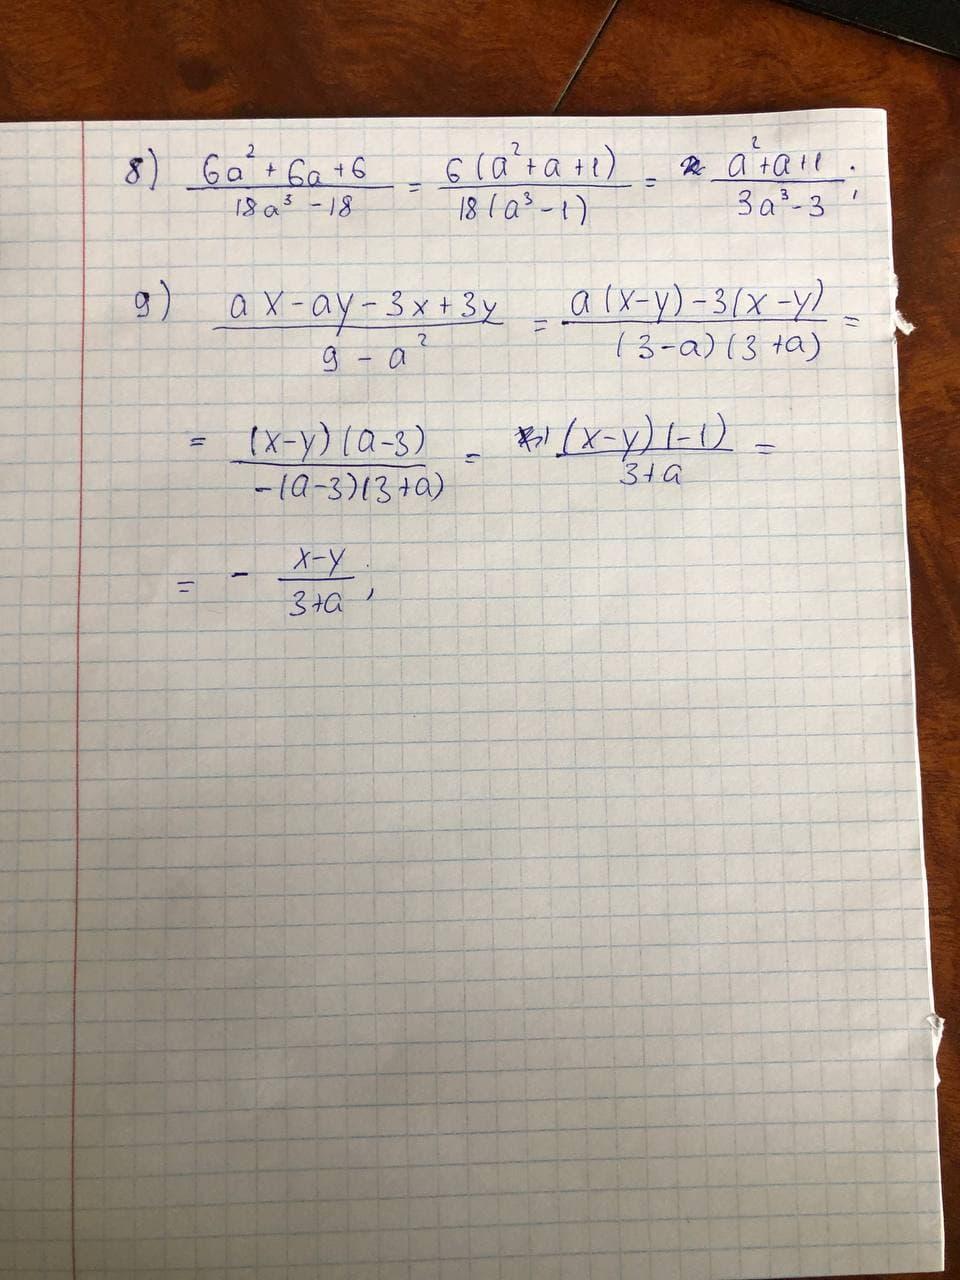 8) (6a² + 6a + 6)/(18a³ - 18) = 6(a² + a + 1)/18(a³ - 1) = (a² + a + 1)/(3a³ - 3) ;
9) (ax - ay - 3x + 3y)/(9 - a²) = (a(x-y) - 3(x-y))/((3-a)(3+a)) =
= (x-y)(a-3)/(-(a-3)(3+a)) = (x-y)(-1)/(3+a) =
= - (x-y)/(3+a) ;